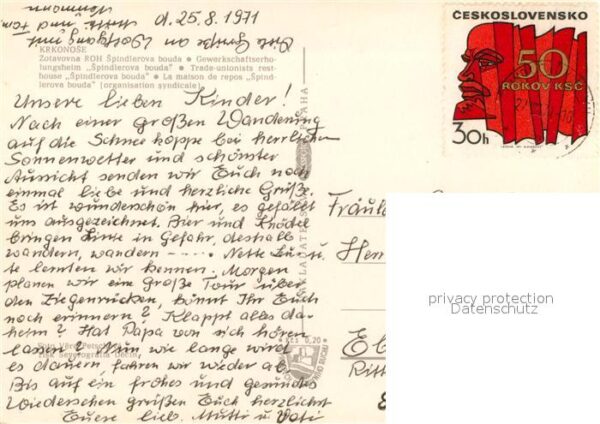 d. 25.8.1971
Viele Grüße an Wolfgang und
KRKONOŠE
Zotavovna ROH Špindlerova bouda • Gewerkschaftserho-
lungsheim „Špindlerova bouda" • Trade-unionists rest-
house „Špindlerova bouda" • La maison de repos „Špind-
lerova bouda" (organisation syndicale)
Unsere lieben Kinder!
Nach einer großen Wanderung
auf die Schneekoppe bei herrlichem
Sonnenwetter und schönster
Aussicht senden wir Euch noch
einmal liebe und herzliche Grüße.
Es ist wunderschön hier, es gefällt
uns ausgezeichnet. Bier und Knödel
bringen Linie in Gefahr, deshalb
wandern, wandern ---- Nette Leu-
te lernten wir kennen. Morgen
planen wir eine große Tour über
den Ziegenrücken, könnt Ihr Euch
noch erinnern? Klappt alles da-
heim? Hat Papa von sich hören
lassen? Nun wie lange wird
es dauern, fahren wir wieder ab.
Bis auf ein frohes und gesundes
Wiedersehen grüßen Euch herzlichst
Eure lieb. Mutti u. Vati
Foto Věro
Tisk Severografia Děčín
Kčs 0,20
PRAHA
ČESKOSLOVENSKO
50
ROKOV KSČ
30h
Fräul
Herr
Eb
Ritt
privacy protection
Datenschutz